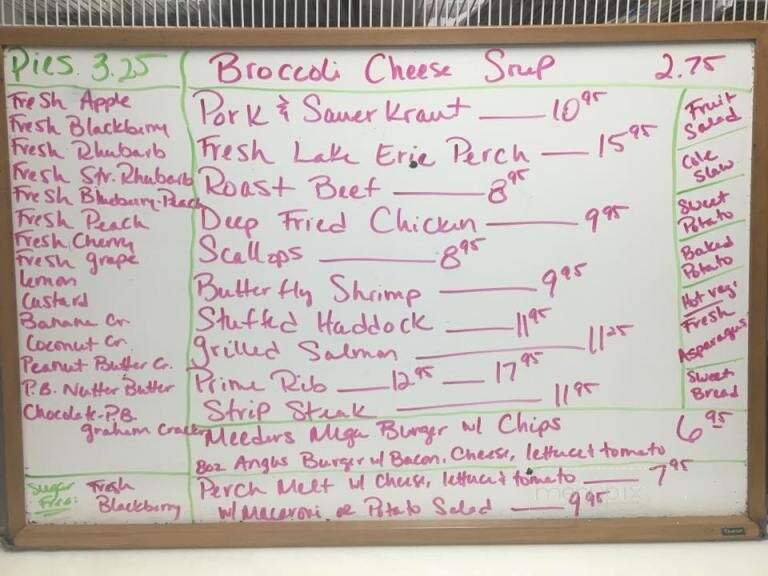 Pies 3.25
Fresh Apple
Fresh Blackberry
Fresh Rhubarb
Fresh Str. Rhubarb
Fresh Blueberry-Peach
Fresh Peach
Fresh Cherry
Fresh grape
Lemon
Custard
Banana Cr.
Coconut Cr.
Peanut Butter Cr.
P.B. Nutter Butter
Chocolate-P.B.
graham Cracker
Sugar Free: Fresh Blackberry
Broccoli Cheese Soup 2.75
Pork & Sauerkraut 10 95
Fresh Lake Erie Perch 15 95
Roast Beef 8 95
Deep Fried Chicken 9 95
Scallops 8 95
Butterfly Shrimp 9 95
Stuffed Haddock 11 95
grilled Salmon 11 25
Prime Rib 12 95 — 17 95
Strip Steak 11 95
Meeders Mega Burger w/ Chips 6 95
8oz Angus Burger w/ Bacon, Cheese, lettuce & tomato
Perch Melt w/ Cheese, lettuce & tomato 7 95
w/ Macaroni or Potato Salad 9 95
Fruit Salad
Cole Slaw
Sweet Potato
Baked Potato
Hot veg:
Fresh
Asparagus
Sweet Bread